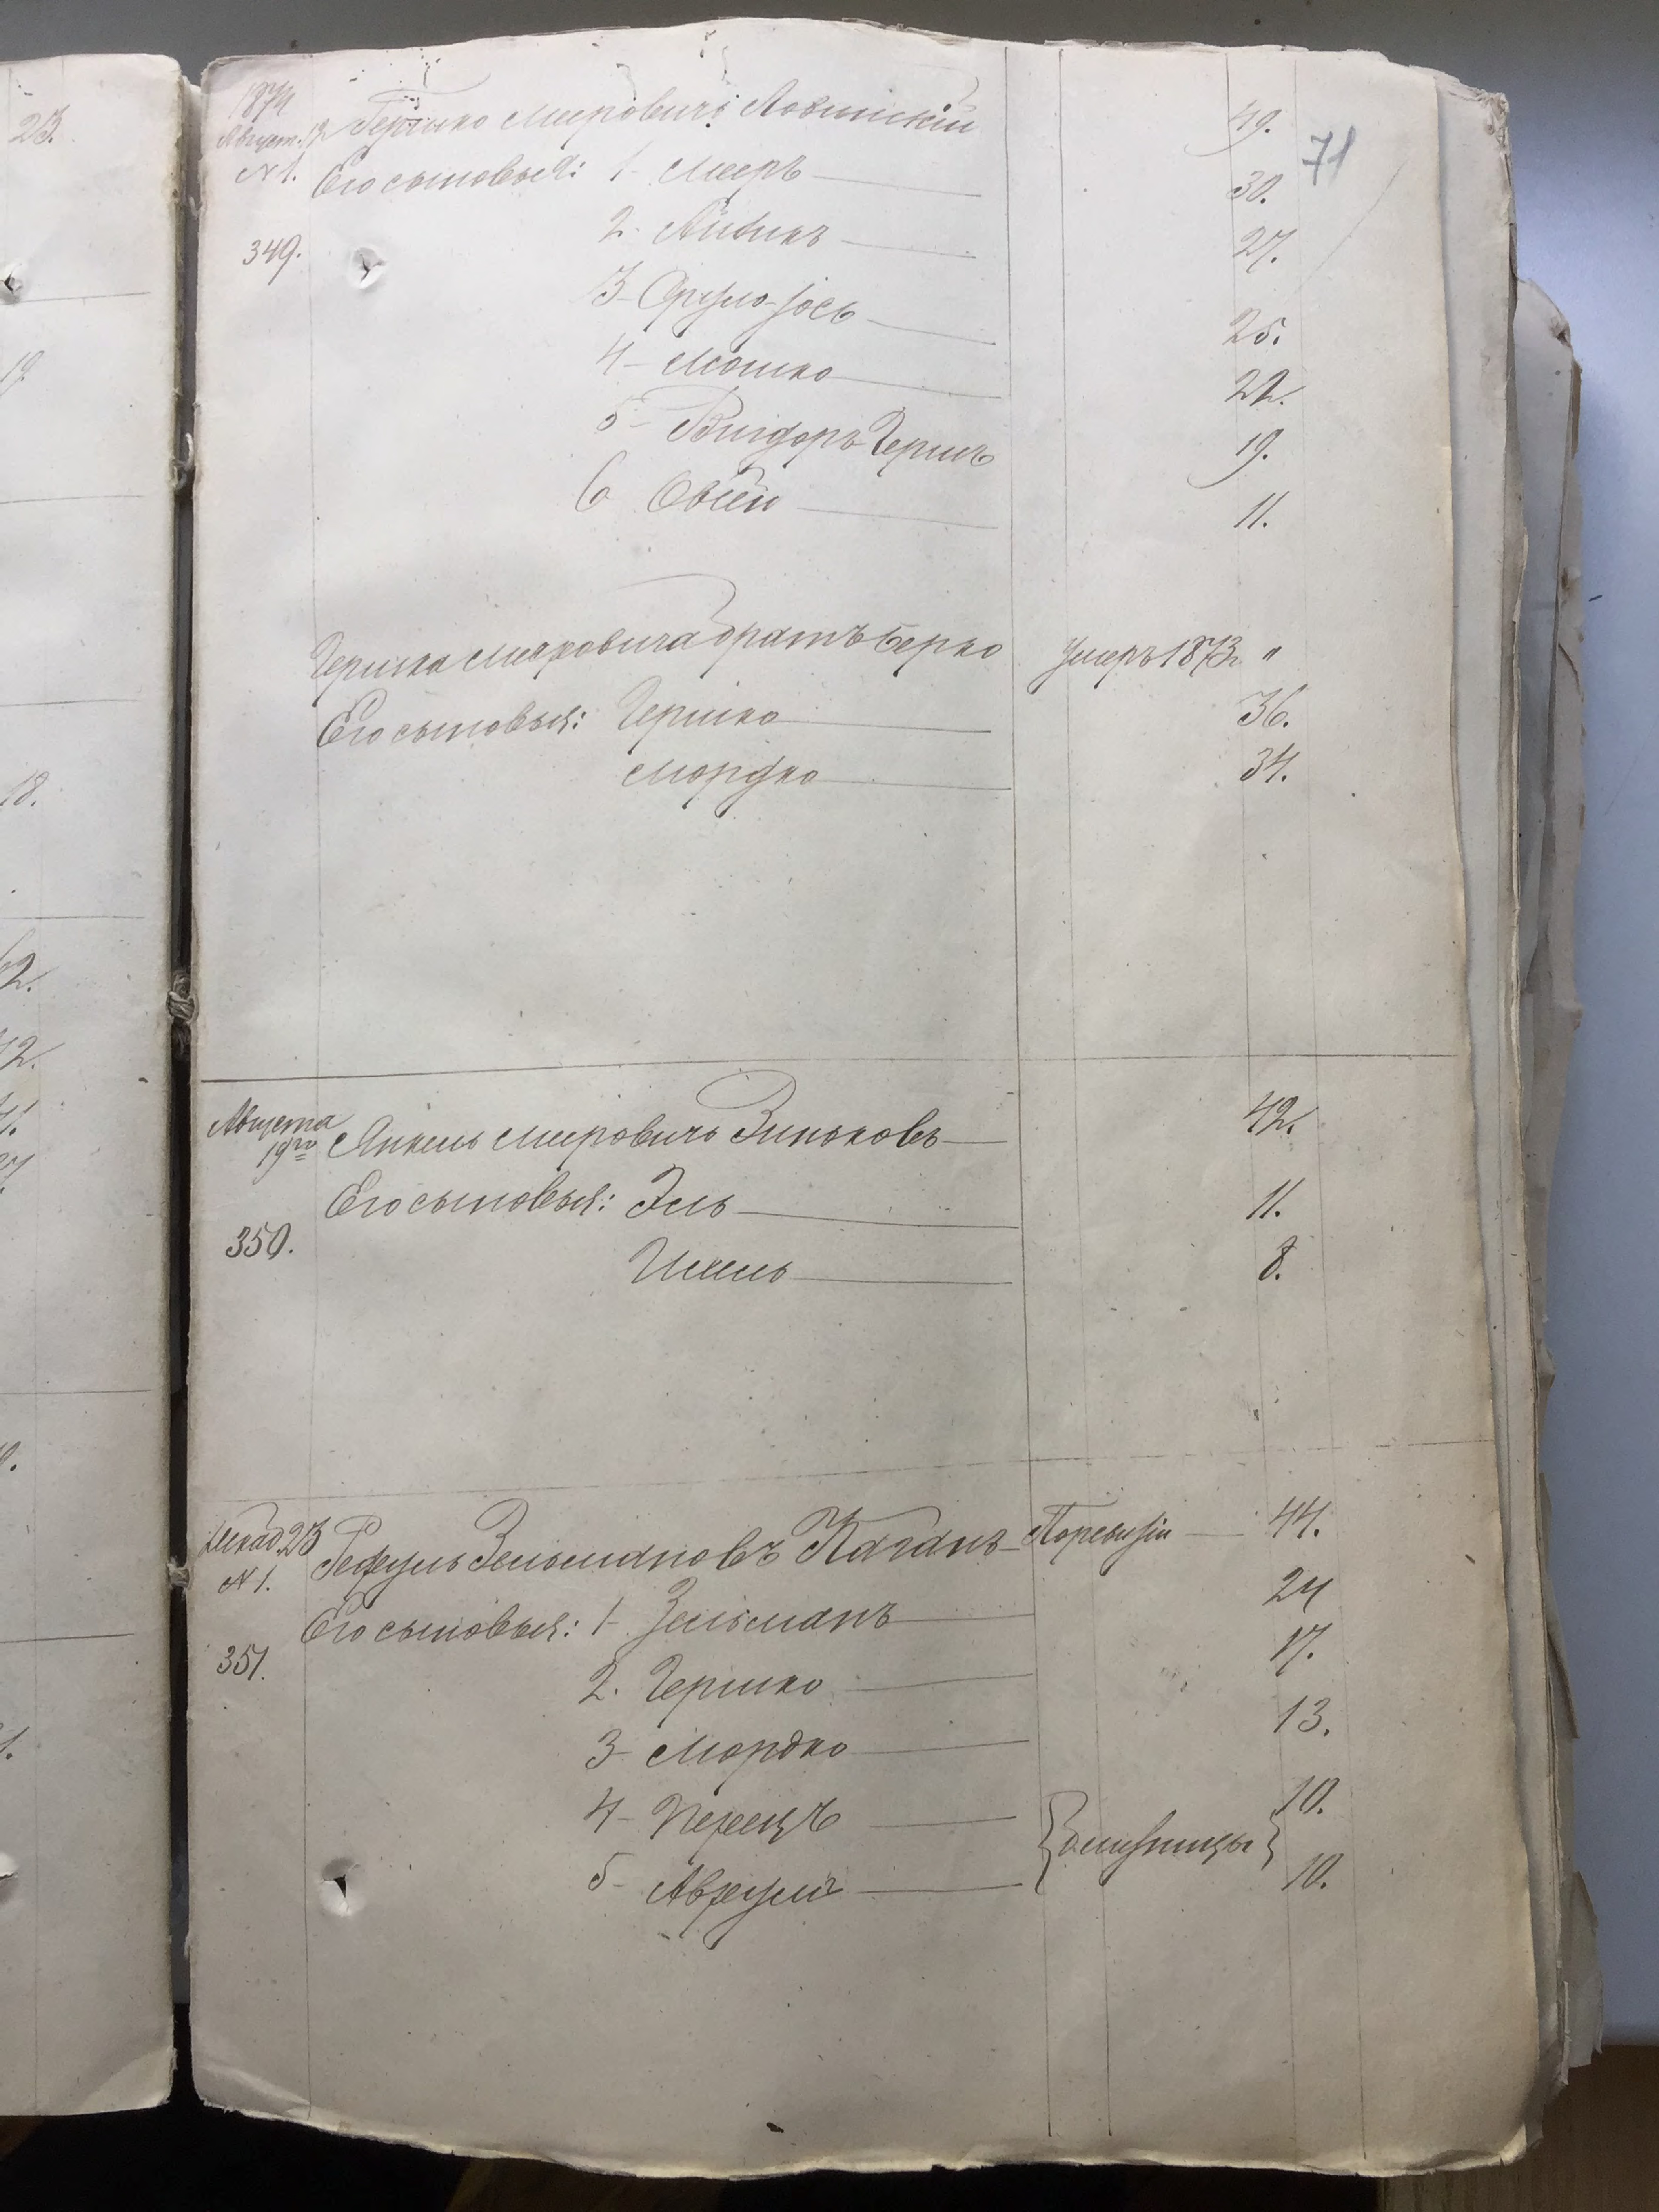 23.
19.
18.
2.
2.
1874
Август. 12
N 1.
349.
Гершко Меерович Ловинскій 49.
71
Его сыновья: 1- Мееръ 30.
2- Айзикъ 27.
3- Сруло-Іось 25.
4- Мошко 22.
5- Вигдоръ-Гершъ 19.
6 Овсей 11.
Гершка Мееровича братъ Берко Умеръ 1873 г. "
Его сыновья: Гершко 36.
Мордко 34.
Августа
19го
350.
Янкель Мееровичъ Зиньковъ 42.
Его сыновья: Эль 11.
Ихель 8.
23
N 1.
351.
Рефуль Зельмановъ Каганъ По ревизіи 44.
Его сыновья: 1- Зельманъ 24
2. Гершко 17.
3- Мордко 13.
4- Перецъ 10.
{близницы}
5- Аврумъ 10.